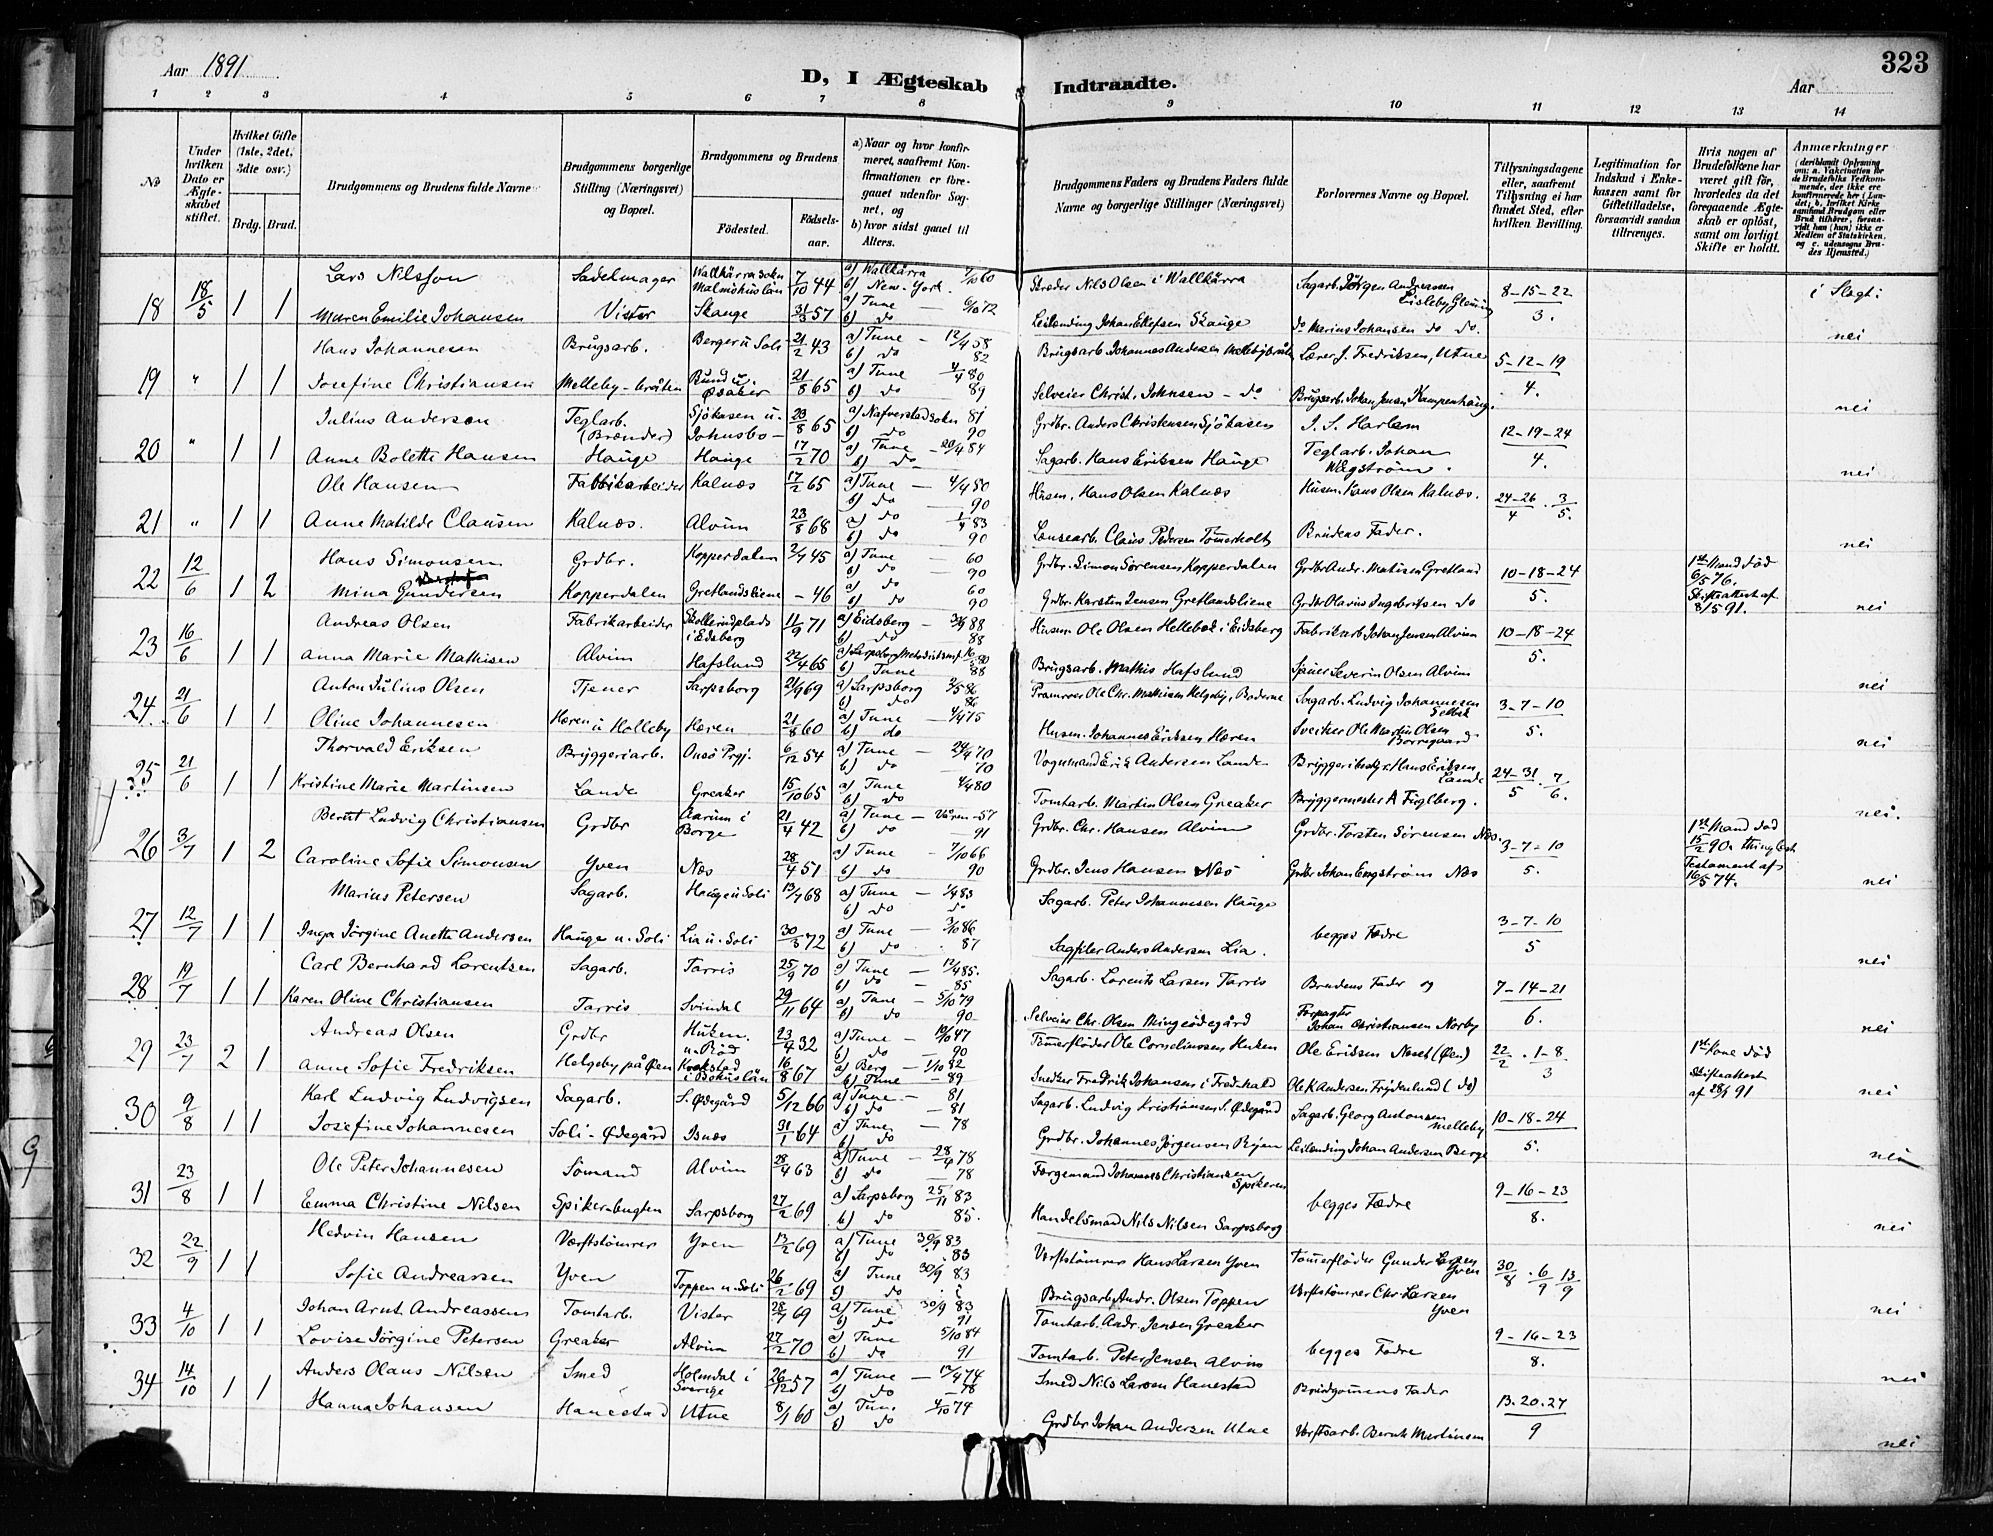 323
Aar 1891
D, I Ægteskab Indtraadte.
Aar
1 2 3 4 5 6 7 8 9 10 11 12 13 14
No
Under hvilken Dato er Ægteskabet stiftet.
Hvilket Gifte (1ste, 2det, 3die osv.)
Brdg. Brud.
Brudgommens og Brudens fulde Navne
Brudgommens borgerlige Stilling (Næringsvei) og Bopæl.
Brudgommens og Brudens
Fødested. Fødselsaar.
a) Naar og hvor konfirmeret, saafremt Konfirmationen er foregaaet udenfor Sognet, og
b) hvor sidst gaaet til Alters.
Brudgommens Faders og Brudens Faders fulde Navne og borgerlige Stillinger (Næringsvei)
Forlovernes Navne og Bopæl.
Tillysningsdagene eller, saafremt Tillysning ei har fundet Sted, efter hvilken Bevilling.
Legitimation for Indskud i Enkekassen samt for Giftetilladelse, forsaavidt saadan tiltrænges.
Hvis nogen af Brudefolkene har været gift før, hvorledes da det foregaaende Ægteskab er opløst, samt om lovligt Skifte er holdt.
Anmærkninger
18 18/5 1 1 Lars Nilsson Sadelmager Wallkärra sokn Malmöhuslän 7/10 44 a) Wallkärra 60 b) New-York. Skræder Nils Olsen i Wallkärra Sagarb. Jörgen Andreassen 8-15-22 i Slegt:
Maren Emilie Johansen Vister Skauge 31/3 57 a) Tune 6/10 72 b) do Leilending Johan Skauge do Marius Johansen do do. 3. nei
19 " 1 1 Hans Johannesen Brugsarb. Berger u Soli 21/2 43 a) Tune 58 b) do 82 Brugsarb. Johannes Andersen Lærer J. Fredriksen, Utne 5-12-19
Josefine Christiansen Melleby-bråten 21/8 65 a) Tune 80 b) do 89 Selveier Christ. Johnsen - do Brugsarb. Johan Jensen Kampenhaug. 4. nei
20 " 1 1 Julius Andersen Teglarb. (Brænder) Sjökasen u. 23/8 65 a) Nafverstad sokn 81 b) do 90 Grdbr. Anders Christensen Sjökasen J. S. Harlem 12-19-24
Anne Bolette Hansen Hauge Hauge 17/2 70 a) Tune 20/4 84 b) do Sagarb. Hans Eriksen Hauge Teglarb. Johan 4. nei
21 " 1 1 Ole Hansen Fabrikarbeider Kalnæs 17/2 65 a) Tune 4/4 80 b) do 90 Husm. Hans Olsen Kalnæs Husm. Hans Olsen Kalnæs. 24-26/4 . 3/5.
Anne Matilde Clausen Kalnæs. Alvim 23/8 68 a) do 83 b) do 90 Claus Pedersen Tömerholt Brudens Fader. nei
22 12/6 1 2 Hans Simonsen Grdbr. Kopperdalen 2/7 45 a) Tune 60 b) do 90 Grdbr. Simon Sørensen Kopperdalen Grdbr Andr. Matisen Gretland 10-18-24 1st Mand död 6/5 76.
Mina Gundersen Kopperdalen Gretlandsliene - 46 a) do 60 b) do 90 Grdbr. Karsten Jensen Gretlandsliene Grdbr Olavus Ingebritsen do 5. Skifteattest af 8/5 91. nei
23 16/6 1 1 Andreas Olsen Fabrikarbeider i Edsberg 11/9 71 a) Eidsberg 88 b) do 88 Husm Ole Olsen Hellebæk i Eidsberg Fabrikarb Johan Jensen Alvim 10-18-24
Anna Marie Mathisen Alvim Hafslund 22/4 65 b) Tune 88 Brugsarb. Mathis Hafslund Severin Olsen Alvim 5. nei
24 21/6 1 1 Anton Julius Olsen Tjener Sarpsborg 2/9 69 a) Sarpsborg 86 b) do 86 Ole Chr. Mathisen Helgeby, Bøderne Sagarb. Ludvig Johannesen Selbak 3-7-10
Oline Johannesen Hæren u Holleby Hæren 21/8 60 a) Tune 75 b) do Husm. Johannes Eriksen Hæren Ole Martin Olsen Borregaard 5. nei
25 21/6 1 1 Thorvald Eriksen Bryggeriarb. Onsö Prgj. 6/12 54 a) Tune 24/4 70 b) do 70 Vognmand Erik Andersen Lande Hans Eriksen Lande 24-31/5 . 7/6.
Kristine Marie Martinsen Lande Greaker 15/10 65 a) Tune 4/4 80 b) do Tomtarb. Martin Olsen Greaker Bryggermester A Fuglberg. nei.
26 3/7 1 2 Bernt Ludvig Christiansen Grdbr Aarum i Borge 21/4 42 a) Tune - Våren - 57 b) do 91 Grdbr. Chr. Hansen Alvim Grdbr. Torsten Sørensen Næs. 3-7-10 1st Mand död 15/2 90.
Caroline Sofie Simonsen Yven Næs 28/4 51 a) Tune 7/10 66 b) do 90 Grdbr. Jens Hansen Næs Grdbr Johan Engström Næs 5. Testament af 16/5 74. nei
27 12/7 1 1 Marius Petersen Sagarb. Hauge u Soli 13/7 68 a) Tune 83 b) do do Sagarb. Peter Johannesen Hauge begges Fædre 3-7-10
Inga Jörgine Anette Andersen Hauge u. Soli Lia u. Soli 30/3 72 a) Tune 3/10 86 b) do 87 Anders Andersen Lia. 5 nei
28 19/7 1 1 Carl Bernhard Lorentsen Sagarb. Tarris 25/9 70 a) Tune 85. b) do 85 Sagarb. Lorents Larsen Tarris Brudens Fader og 7-14-21
Karen Oline Christiansen Tarris Svindal 29/11 64 a) Tune 5/10 79 b) do 90 Selveier Chr. Olsen Mingeødegård Forpagter Johan Christiansen Norby 6. nei
29 23/7 2 1 Andreas Olsen Grdbr Huken u. Röd 23/4 32 a) Tune 47 b) do 90 Tömerfløder Ole Corneliussen Huken Ole Eriksen Neset (Øen) 22/2 . 1-8/3 1st Kone död
Anne Sofie Fredriksen Helgeby på Øen i Bohuslän 16/8 67 a) Berg 1/10 82 b) Tune 89 Snedker Fredrik Johansen i Fredrhald Ole K Andersen (do) Skifteattest af 28/1 91 nei
30 9/8 1 1 Karl Ludvig Ludvigsen Sagarb. S. Ødegård 5/12 66 a) Tune 81 b) do 81 Sagarb. Ludvig Kristiansen S. Ødegård Sagarb. Georg Antonsen Melleby 10-18-24
Josefine Johannesen Soli-Ødegård Isnæs 31/1 64 a) Tune 78 b) do Grdbr. Johannes Jørgensen Leilending Johan Andersen Berge 5. nei
31 23/8 1 1 Ole Peter Johannesen Sömand Alvim 28/4 63 a) Tune 28/4 78 b) do 78 Johannes Christiansen Spikeren begges Fædre 9-16-23
Emma Christine Nilsen Spikerbugten Sarpsborg 27/2 69 a) Sarpsborg 25/11 83 b) do 85. Handelsmand Nils Nilsen Sarpsborg 8. nei
32 22/9 1 1 Hedvin Hansen Værftstömrer Yven 13/2 69 a) Tune 30/9 83 b) do 83 Værftstömrer Hans Larsen Yven Tömerfløder Gunder Larsen Yven 30/8 . 6/9 13/9
Sofie Andreassen Yven Toppen u. Soli 26/2 69 a) Tune 30/9 83 b) do Brugsarb. Andr. Olsen Toppen Værftstömrer Chr. Larsen Yven nei
33 4/10 1 1 Johan Arnt Andreassen Tomtarb. Vister 28/7 69 a) Tune 30/9 83 b) do 91 Tomtarb. Andr. Jensen Greaker begges Fædre 9-16-23
Lovise Jörgine Petersen Greaker Alvim 27/2 70 a) Tune 5/10 84 b) do 91 Tomtarb. Peter Jensen Alvim 8. nei
34 14/10 1 1 Anders Olaus Nilsen Smed Holmdal i Sverige 26/12 57 a) Tune 74 b) do 78 Smed Nils Larsen Hanestad Brudgomens Fader 13.20.27
Hanna Johansen Hanestad Utne 8/1 60 a) Tune 74 b) do Grdbr Johan Andersen Utne Værftsarb. Bernt Martinsen 9 nei